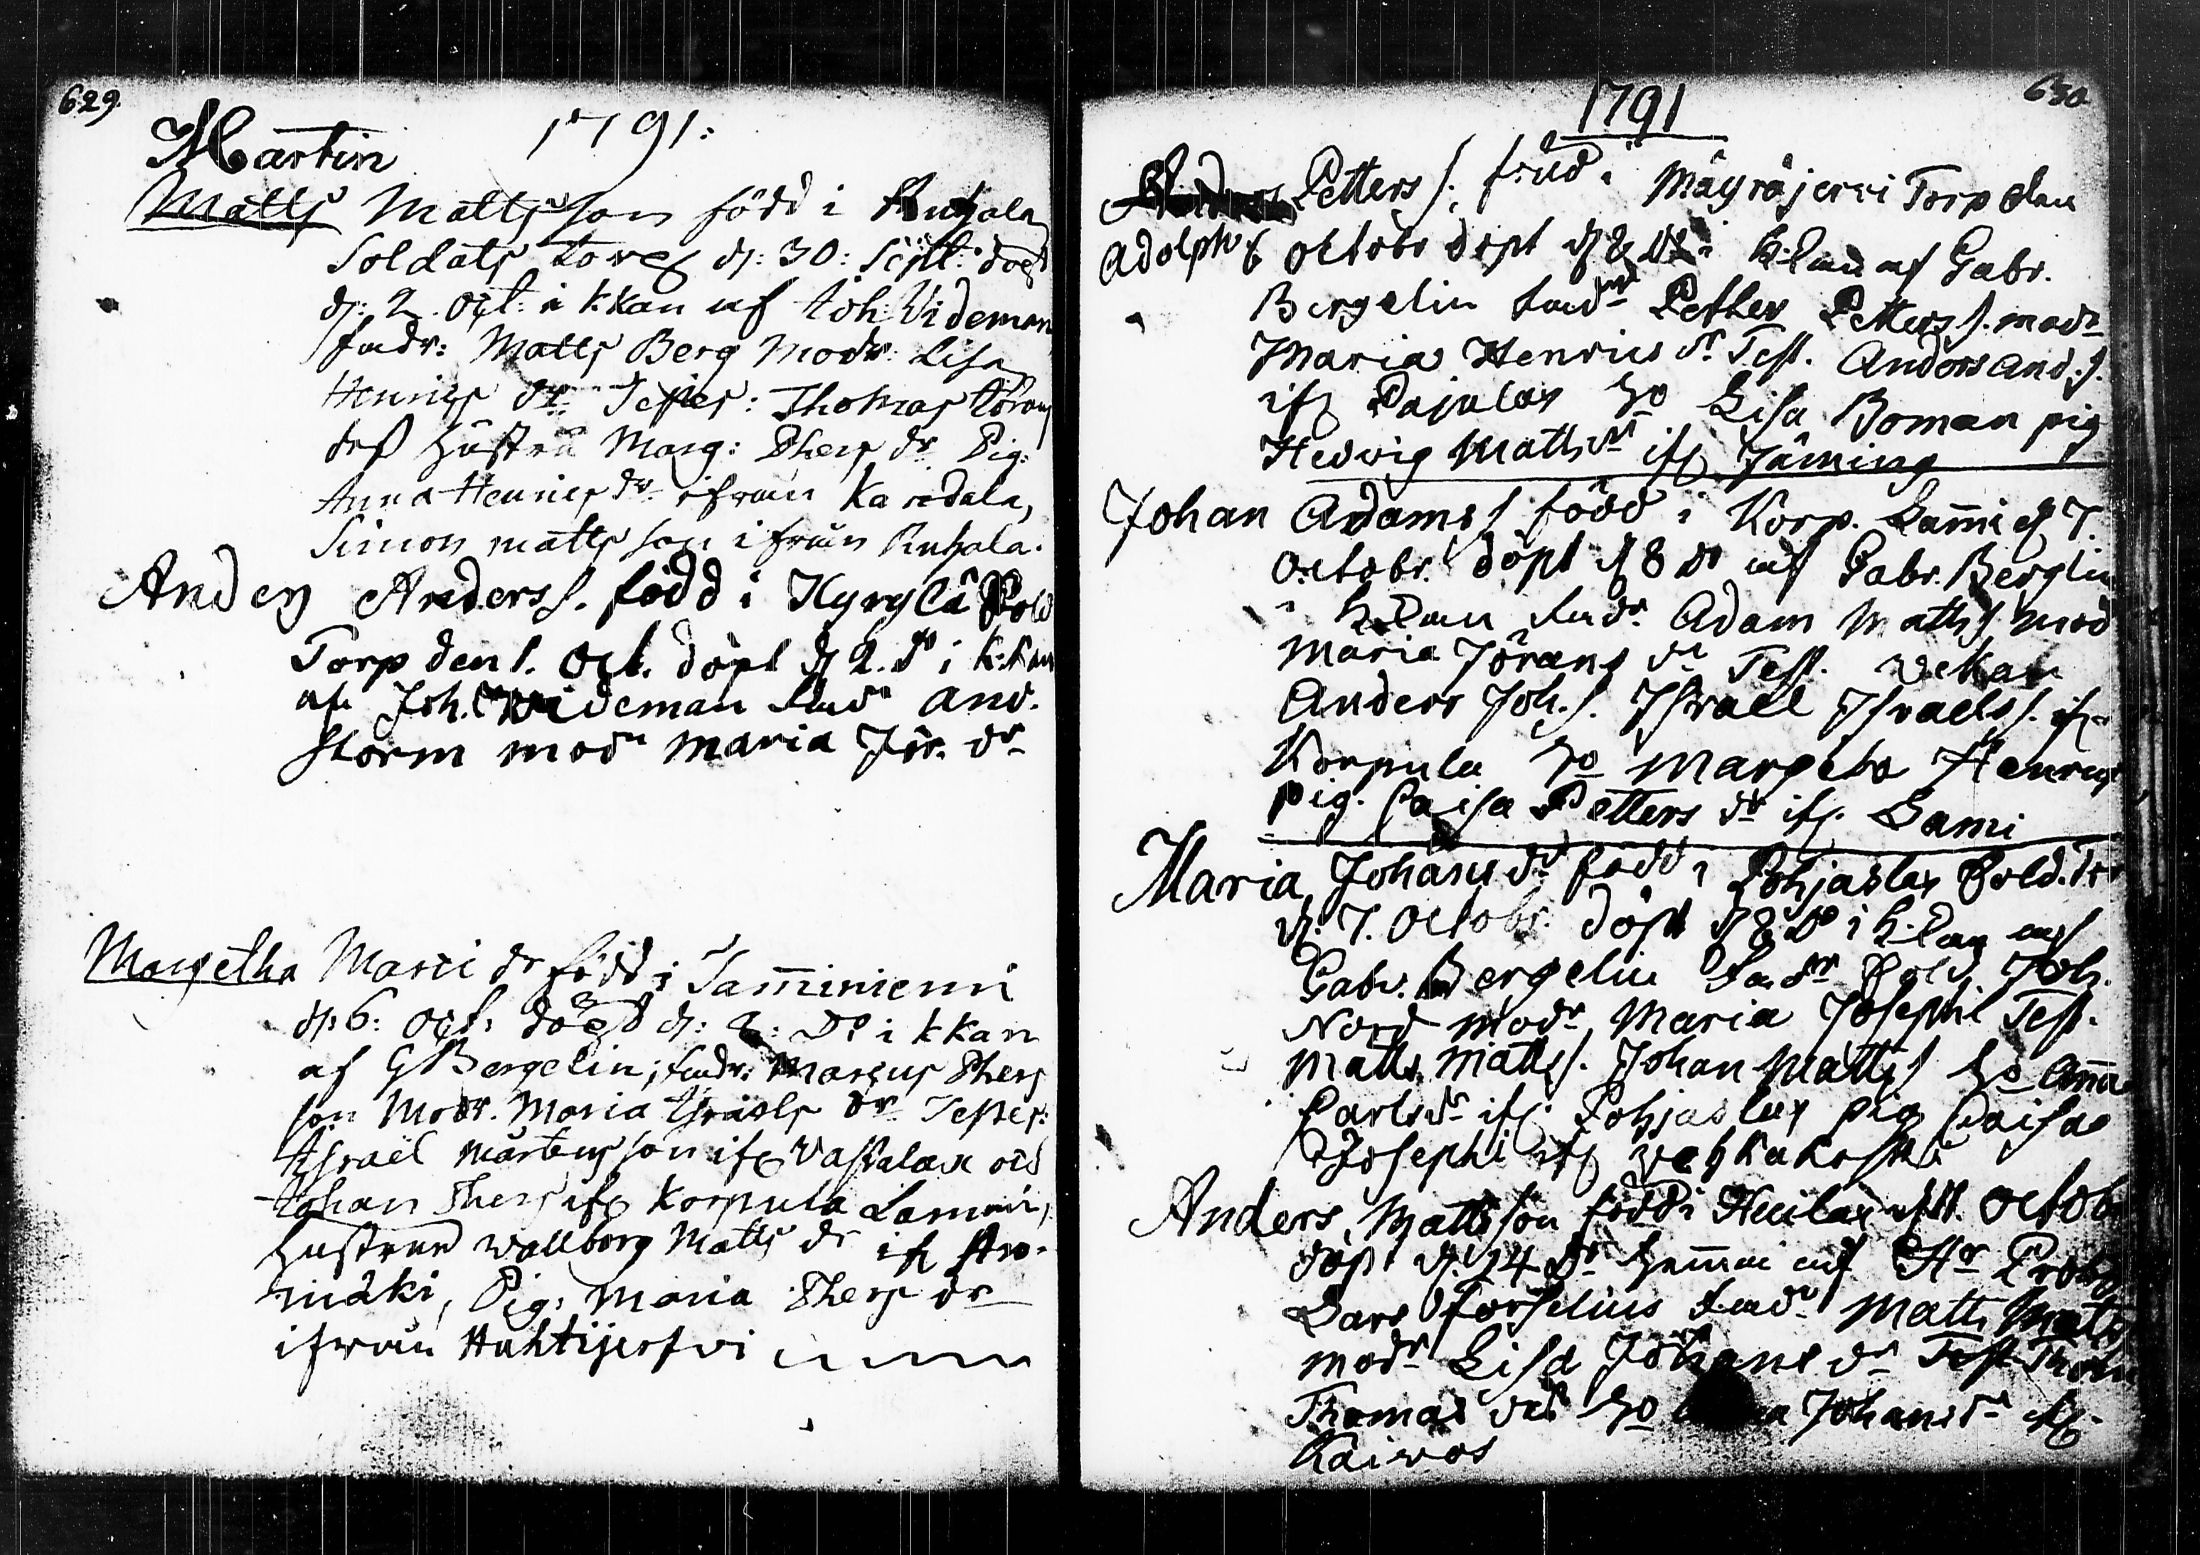 629
1791:
Martin
Matts Mattsson född i Ruhala
Soldats torp d: 30: Sept: döpt
d: 2. Oct: i k:kan af Joh: Videman
fadr: Matts Berg Modr: Lisa
Henrics dr Testes: Thomas Görans
dess hustru Marg: Thers dr. Pig:
Anna Henrics dr ifrån Karedala,
Simon Matts son ifrån Ruhala.
Anders Anderss. född i Kyrylä Sold
Torp den 1. Oct. döpt d 2. do i k:kan
af Joh. Wideman fadr And.
Storm modr Maria Jör. dr
Margetha Marci dr född i Tamminiemi
d: 6: Oct: döpt d: 8: Do i kkan
af G Bergelin; fadr: Marcus Thers
son Modr. Maria Israels dr Testes:
Israel Mårtens son if Vassalax och
Johan Thers if Korpula Lammi,
hustrun Wallborg Matts dr if Aro-
mäki, Pig: Maria Thers dr
ifrån Hahtijerfvi
630
1791
Petters s. född i Mäyräjervi Torp den
Adolph 6 Octobr döpt d 8 do i k:kan af Gabr.
Bergelin fadr Petter Petters s. modr
Maria Henrics dr Test. Anders And. s.
if Pajulax ho Lisa Boman pig
Hedvig Matts dr if Jäming
Johan Adams s född i Korp. Lammi d 7.
Octobr. döpt d 8 do af Gabr. Berglin
i k:kan fadr Adam Matts s mod
Maria Jörans dr Test.
Anders Joh. s. Israel Israels s. if
Korpula ho Margeta Henrics
pig. Caisa Petters dr if. Lami
Maria Johans dr född i Pohjaslax Sold. tor
d. 7. Octobr. döpt d 8 do i k:kan af
Gabr. Bergelin fadr Sold. Joh.
Nord modr Maria Josephi Test.
Matts Matts s. Johan Matts s ho Anna
Carls dr if Pohjaslax pig Caisa
Josephi if Wehkakoski
Anders Mattsson född i Heilax d 11. Octob
döpt d. 14 do hemma af Hr Probst
Lars Forselius fadr Matts Matts
modr Lisa Johans dr Test Thom
Thomas ho Johans dr if
Kaiwos